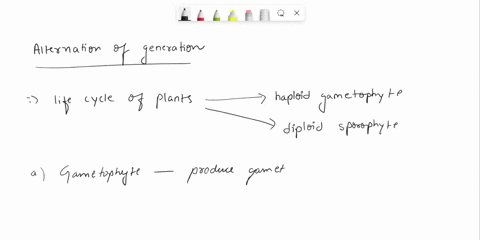 Alternation of generation
=) life cycle of plants → haploid gametophyte
→ diploid sporophyte
a) Gametophyte — produce gamet